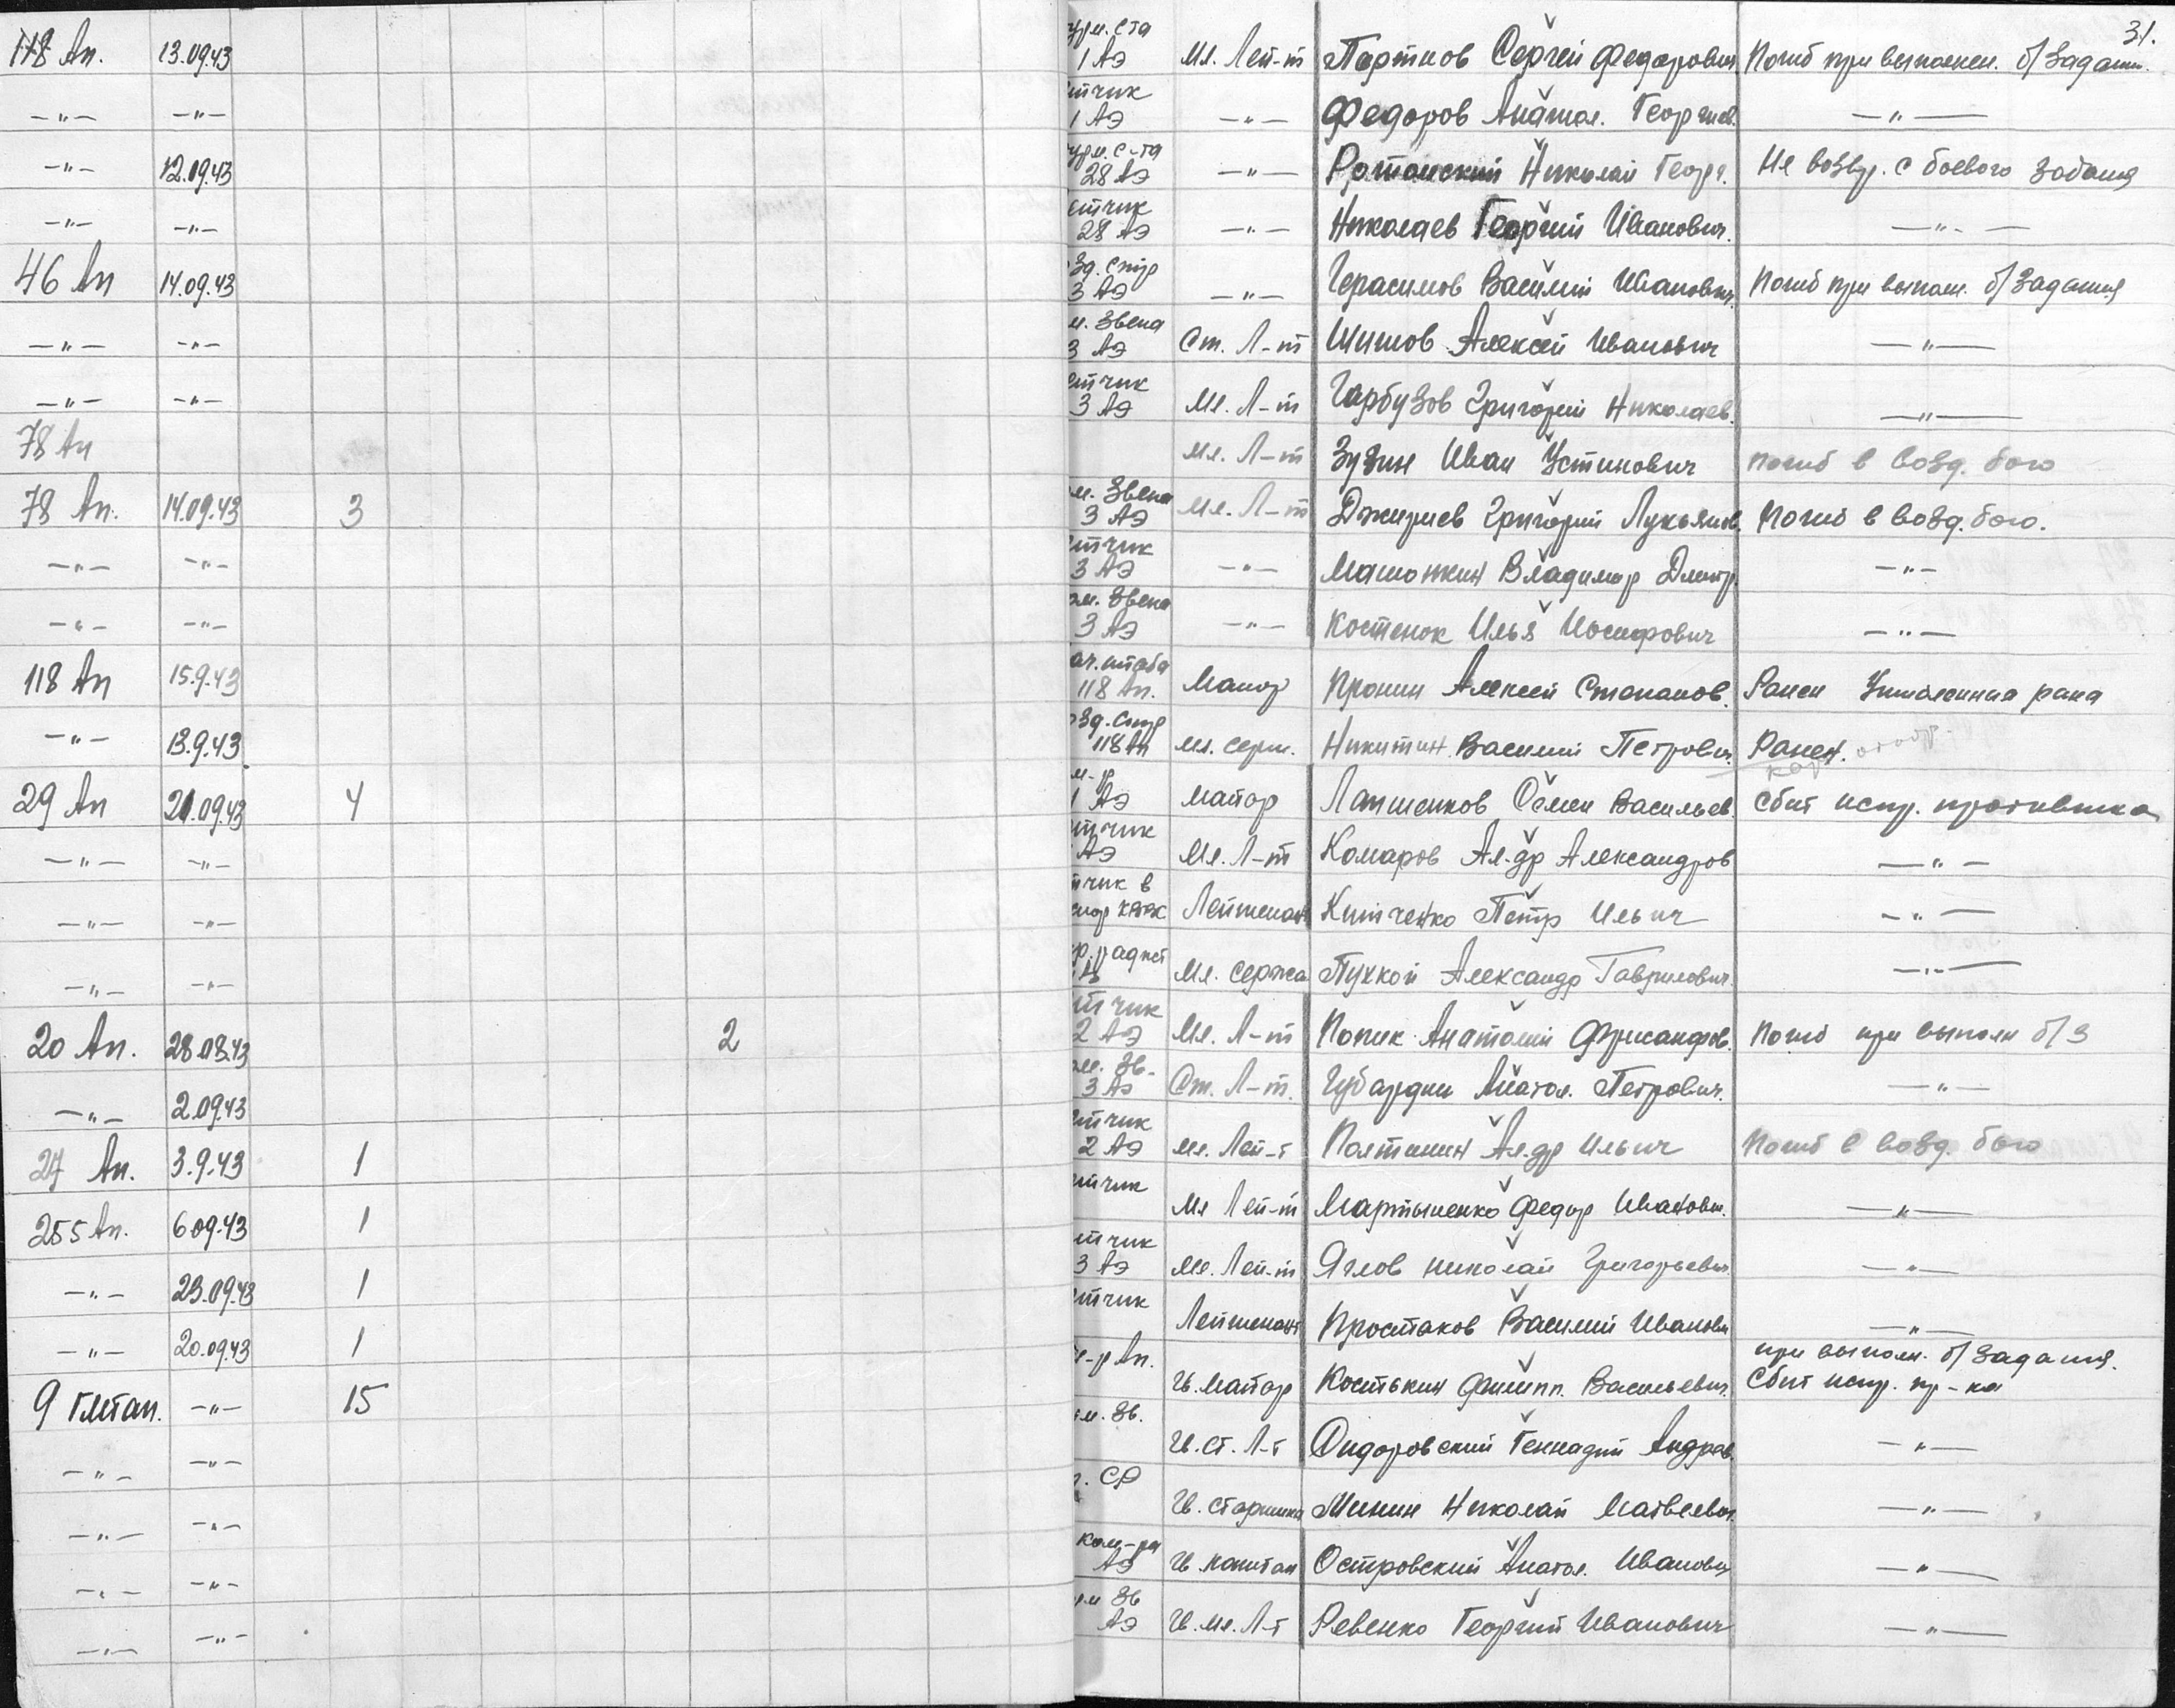 31.
118 Ап. 13.09.43 1 АЭ Мл. Лей-т Партнов Сергей Федорович Погиб при выполнен. б/задани.
—"— —"— тчик 1 АЭ —"— Федоров Анатол. Георгиев. —"—
—"— 12.09.43 28 АЭ —"— Николай Георг. Не возвр. с боевого задания
—"— —"— етчик 28 АЭ —"— Николаев Георгий Иванович. —"—
46 Ап 14.09.43 зд. стр 3 АЭ —"— Герасимов Василий Иванович. Погиб при выполн. б/задания
—"— —"— м. звена 3 АЭ Ст. Л-т Шишов Алексей Иванович —"—
—"— —"— етчик 3 АЭ Мл. Л-т Гарбузов Григорий Николаев. —"—
78 Ап Мл. Л-т Зузин Иван Устинович погиб в возд. бою
78 Ап. 14.09.43 3 м. звена 3 АЭ Мл. Л-т Григорий Лукьянов. Погиб в возд. бою.
—"— —"— етчик 3 АЭ —"— Машожкин Владимир Дмитр. —"—
—"— —"— ом. звена 3 АЭ —"— Костенок Илья Иосифович —"—
118 Ап 15.9.43 ач. штаба 118 Ап. Майор Пронин Алексей Степанов. Ранен рана
—"— 13.9.43. озд. стр 118 Ап мл. серж. Никитин Василий Петрович. Ранен.
29 Ап 21.09.43 4 м-р 1 АЭ майор Лапшенков Семен Васильев. Сбит истр. противника
—"— —"— етчик АЭ Мл. Л-т Комаров Ал-др Александров —"—
—"— —"— тчик в Лейтенант Китченко Петр Ильич —"—
—"— —"— р. радист Мл. сержа Пухкой Александр Гаврилович. —"—
20 Ап. 28.08.43 2 тчик 2 АЭ Мл. Л-т Попик Анатолий Погиб при выполн б/з
—"— 2.09.43 ом. зв. 3 АЭ Ст. Л-т. Анатол. Петрович. —"—
27 Ап. 3.9.43 1 етчик 2 АЭ Мл. Лей-т Полтинин Ал-др Ильич Погиб в возд. бою
255 Ап. 6.09.43 1 етчик Мл Лей-т Мартыненко Федор Иванович. —"—
—"— 23.09.43 1 тчик 3 АЭ Мл. Лей-т Яглов Николай Григорьевич. —"—
—"— 20.09.43 1 етчик Лейтенант Простаков Василий Иванович —"—
9 ГМТАП. —"— 15 м-р Ап. Гв. майор Костькин Филипп. Васильевич. при выполн. б/задания. Сбит истр. пр-ка
—"— —"— ом. Зв. Гв. Ст. Л-т Сидоровский Геннадий Андреев. —"—
—"— —"— СР Гв. старшина Минин Николай Матвеевич. —"—
—"— —"— ком-ра АЭ Гв. капитан Островский Анатол. Иванович —"—
—"— —"— ом Зв АЭ Гв. мл. Л-т Ревенко Георгий Иванович —"—